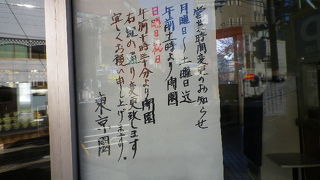 営業時間変更のお知らせ
月曜日〜土曜日迄
午前十時より開園
日曜日祝日
午前十時半分より開園
右記の通り変更致します
宜しくお願い申し上げます。
東京園